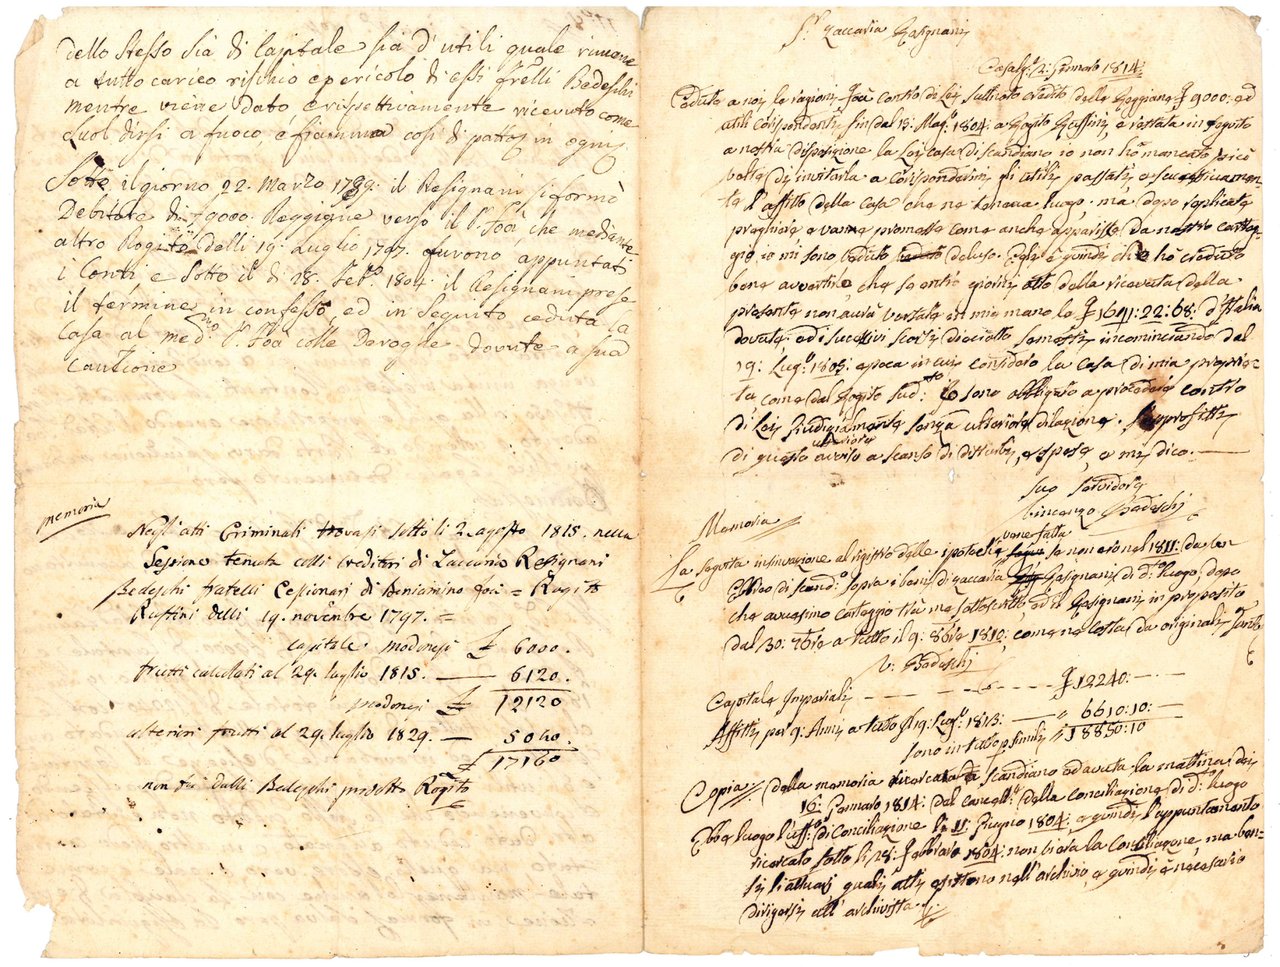 dello stesso sia di Capitale sia d'utili quale rimane
a tutto carico rischio e pericolo di essi frelli Bedeschi
mentre viene dato e rispettivamente ricevuto come
suol dirsi a fuoco, e fiamma così di patto, in ogni
Sotto il giorno 22. Marzo 1789. il Resignani si formò
Debitore di 9000. Reggiane verso il Sr. Foà, che mediante
altro Rogito delli 19. Luglio 1797. furono appuntati
i Conti e Sotto il dì 28. Feb.o 1804. il Resignani prese
il termine in confesso, ed in seguito ceduta la
Casa al med.mo Sr. Foà colle Deroghe dovute a sua
Cauzione
memoria
Negli atti Criminali trovasi sotto li 2. agosto 1815. nella
Sessione tenuta colli Creditori di Zaccaria Resignani
Bedeschi fratelli Cessionari di Beniamino Foà = Rogito
Ruffini delli 19. novembre 1797. =
capitale modenesi £ 6000.
frutti calcolati al 29. luglio 1815. — 6120.
modenesi £ 12120
ulteriori frutti al 29. luglio 1829. — 5040.
£ 17160
non fu dalli Bedeschi prodotto Rogito
Sr. Zaccaria Rasignani
Casalg. 12: Gennaro 1814:
Cedute a noi le ragioni Foà contro di Lei sull'noto credito delle Reggiane £ 9000: ed
utili Corispondenti fin dal 13: Mag.o 1804: a Rogito Ruffini, e restata in seguito
a nostra disposizione la Lei Casa di Scandiano io non hò mancato più
volte di invitarla a corispondermi gli utili passati, e successivamen-
te l'affitto della Casa che ne teneva luogo; ma, dopo replicate
preghiere e vane promesse come anche apparisse da nostro carteg-
gio, io mi sono veduto deluso. Egli è quindi che hò creduto
bene avvertire, che se entro giorni otto dalla ricevuta della
presente non avrà versate in mie mano le £ 1641:22:68: d'Italia
dovute ad successivi scorsi dieciotto semestri incominciando dal
19: Lug.o 1805: epoca in cui considero la Casa di mia proprie-
tà, come dal Rogito sud.to Io sono obbligato a procedere contro
di Lei Giudizialmente senza ulteriore dilazione. Approfitti
ulteriore
di questo avviso a scanso di disturbi, e spese, e mi dico. —
Suo Servidore
Vincenzo Bedeschi
Memoria
venne fatta
La seguita insinuazione al registro delle ipoteche se non ero nel 1811: da
di Scand.o sopra i beni di Zaccaria Rasignani di d.o luogo, dopo
che avessimo carteggio trà me sottoscritto, ed il Rasignani in proposito
dal 30: 7bre a tutto il 9: 8bre 1810, come ne costa da originali
V: Bedeschi
Capitale Imperiali — — — £ 12240:—
Affitti per 9: Anni a tutto li 19: Lug.o 1813: — " 6610:10:—
sono in tutto simili £ 18850:10
Copia della memoria ricercata a Scandiano ed avuta la mattina dei
16: Gennaro 1814: dal Cancell.e della Conciliazione di d.to luogo
Ebbe luogo l'uff.o di Conciliazione li 11: Giugno 1804: e quindi l'appuntamento
ricercato sotto li 28: Febbraro 1804: non era la Conciliazione, ma ben-
sì li attuari quali atti esistono nell'archivio, e quindi è necessario
dirigersi all'archivista.